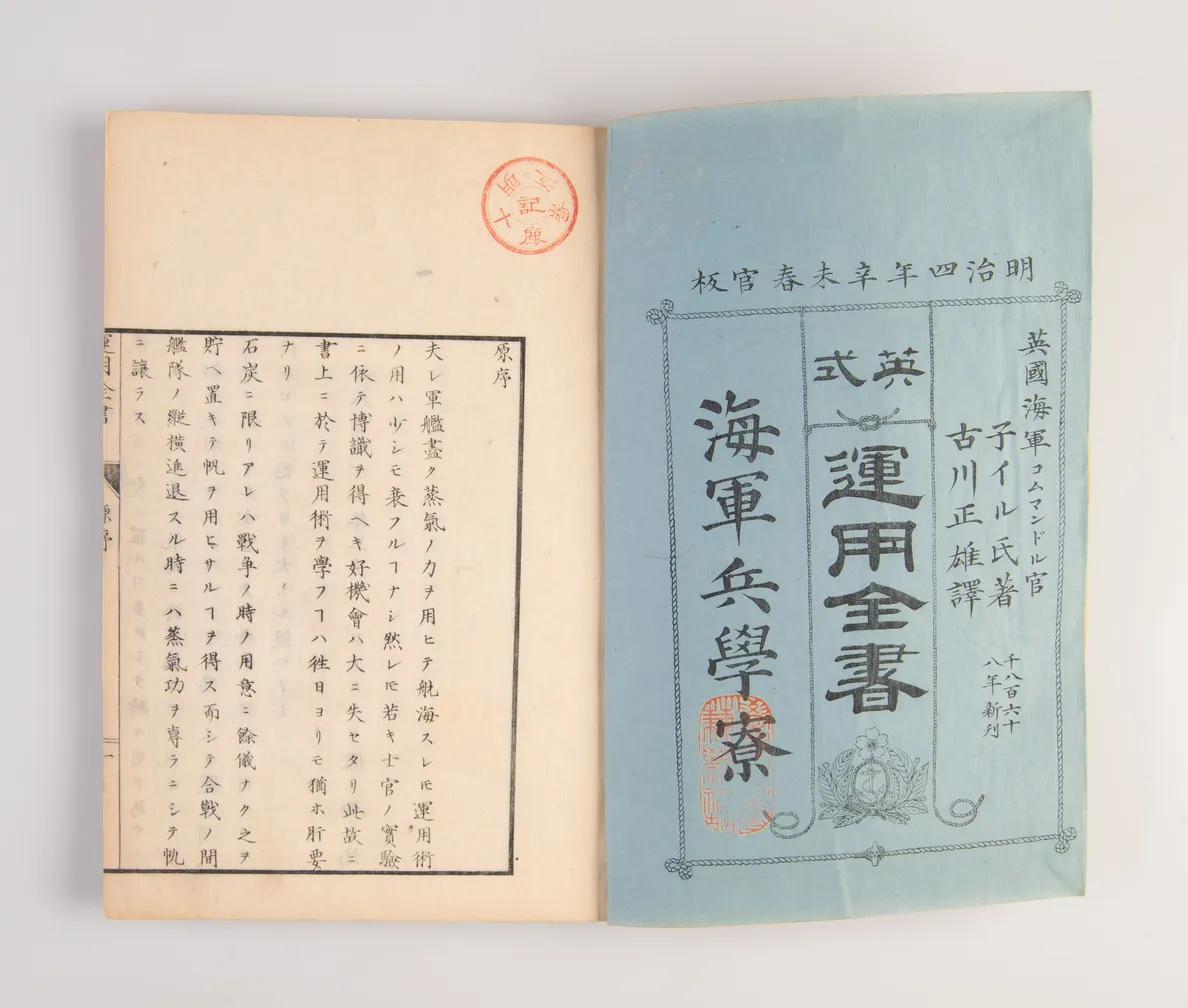 明治四年辛未春官板
英國海軍コムマンドル官
子イル氏著
古川正雄譯
千八百六十
八年新刊
英式
運用全書
海軍兵學寮
原序
夫レ軍艦盡ク蒸氣ノ力ヲ用ヒテ航海スレ𪜈運用術
ノ用ハ少シモ衰フルヿナシ然レ𪜈若キ士官ノ實驗
ニ依テ博識ヲ得ヘキ好機會ハ大ニ失セタリ此故ニ
書上ニ於テ運用術ヲ學フヿハ徃日ヨリモ猶ホ肝要
ナリ
石炭ニ限リアレハ戰争ノ時ノ用意ニ餘儀ナク之ヲ
貯ヘ置キテ帆ヲ用ヒサルヿヲ得ス而シテ合戰ノ間
艦隊ノ縱橫進退スル時ニハ蒸氣功ヲ専ラニシテ帆
ニ讓ラス
運用全書
原序
一